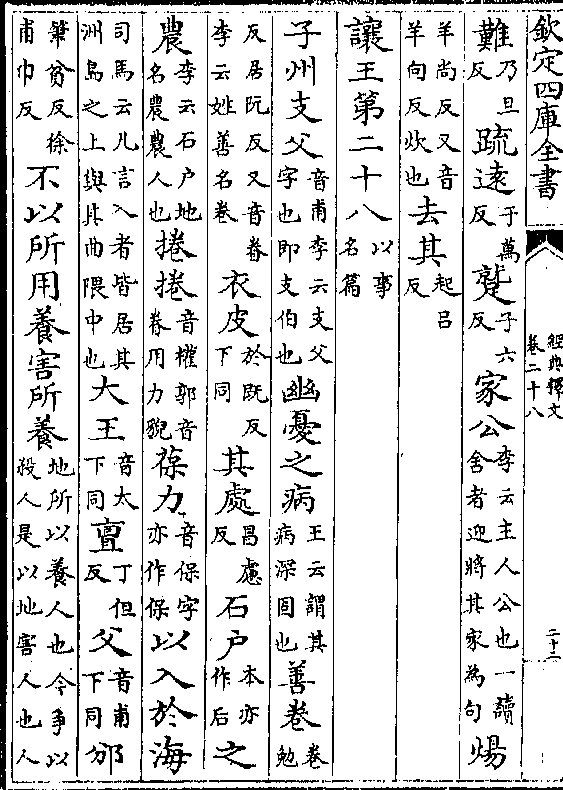 欽定四庫全書 經典釋文 卷二十八 二十二
難乃旦反疏遠于萬反蹵子六反家公李云主人公也一讀舍者迎將其家為句煬
羊尚反又音羊向反炊也去其起呂反
讓王第二十八以事名篇
子州支父音甫李云支父字也即支伯也幽憂之病王云謂其病深固也善卷卷勉
反居阮反又音眷李云姓善名卷衣皮於既反下同其處昌慮反石户本亦作后之
農李云石户地名農農人也捲捲音權郭音眷用力貎葆力音保字亦作保以入於海
司馬云凡言入者皆居其洲島之上與其曲隈中也大王音太下同亶丁但反父音甫下同邠
筆貧反徐甫巾反不以所用養害所養地所以養人也今爭以殺人是以地害人也人